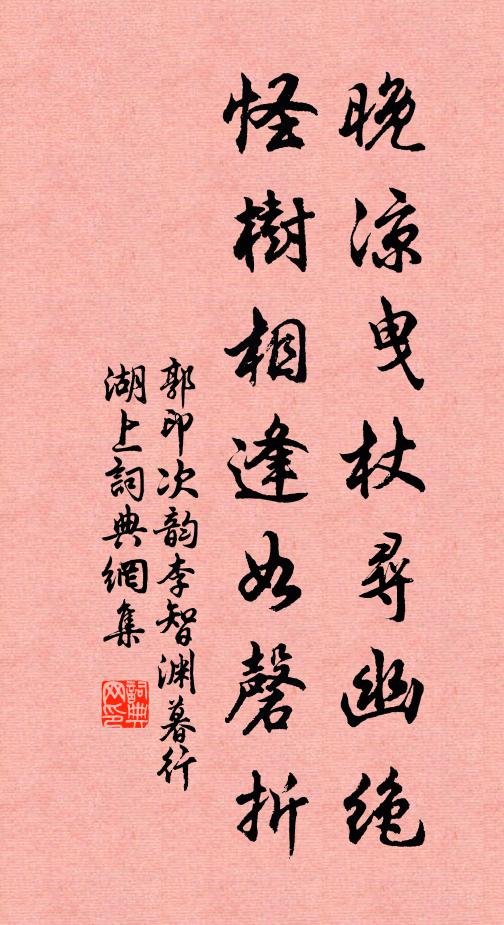 晚凉曳杖尋幽绝
怪樹相逢如磬折
郭印次韵李智渊暮行
湖上詞典網集
詞典网印